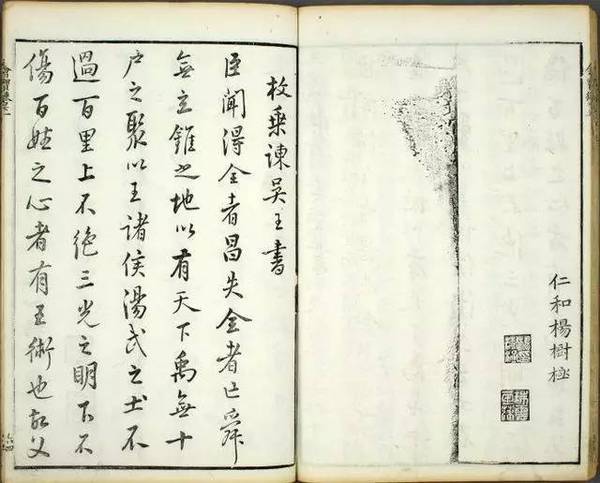 仁和楊樹極
枚乘諫吳王書
臣聞得全者昌失全者亡舜
無立錐之地以有天下禹無十
户之聚以王諸侯湯武之士不
過百里上不絕三光之明下不
傷百姓之心者有王術也故父